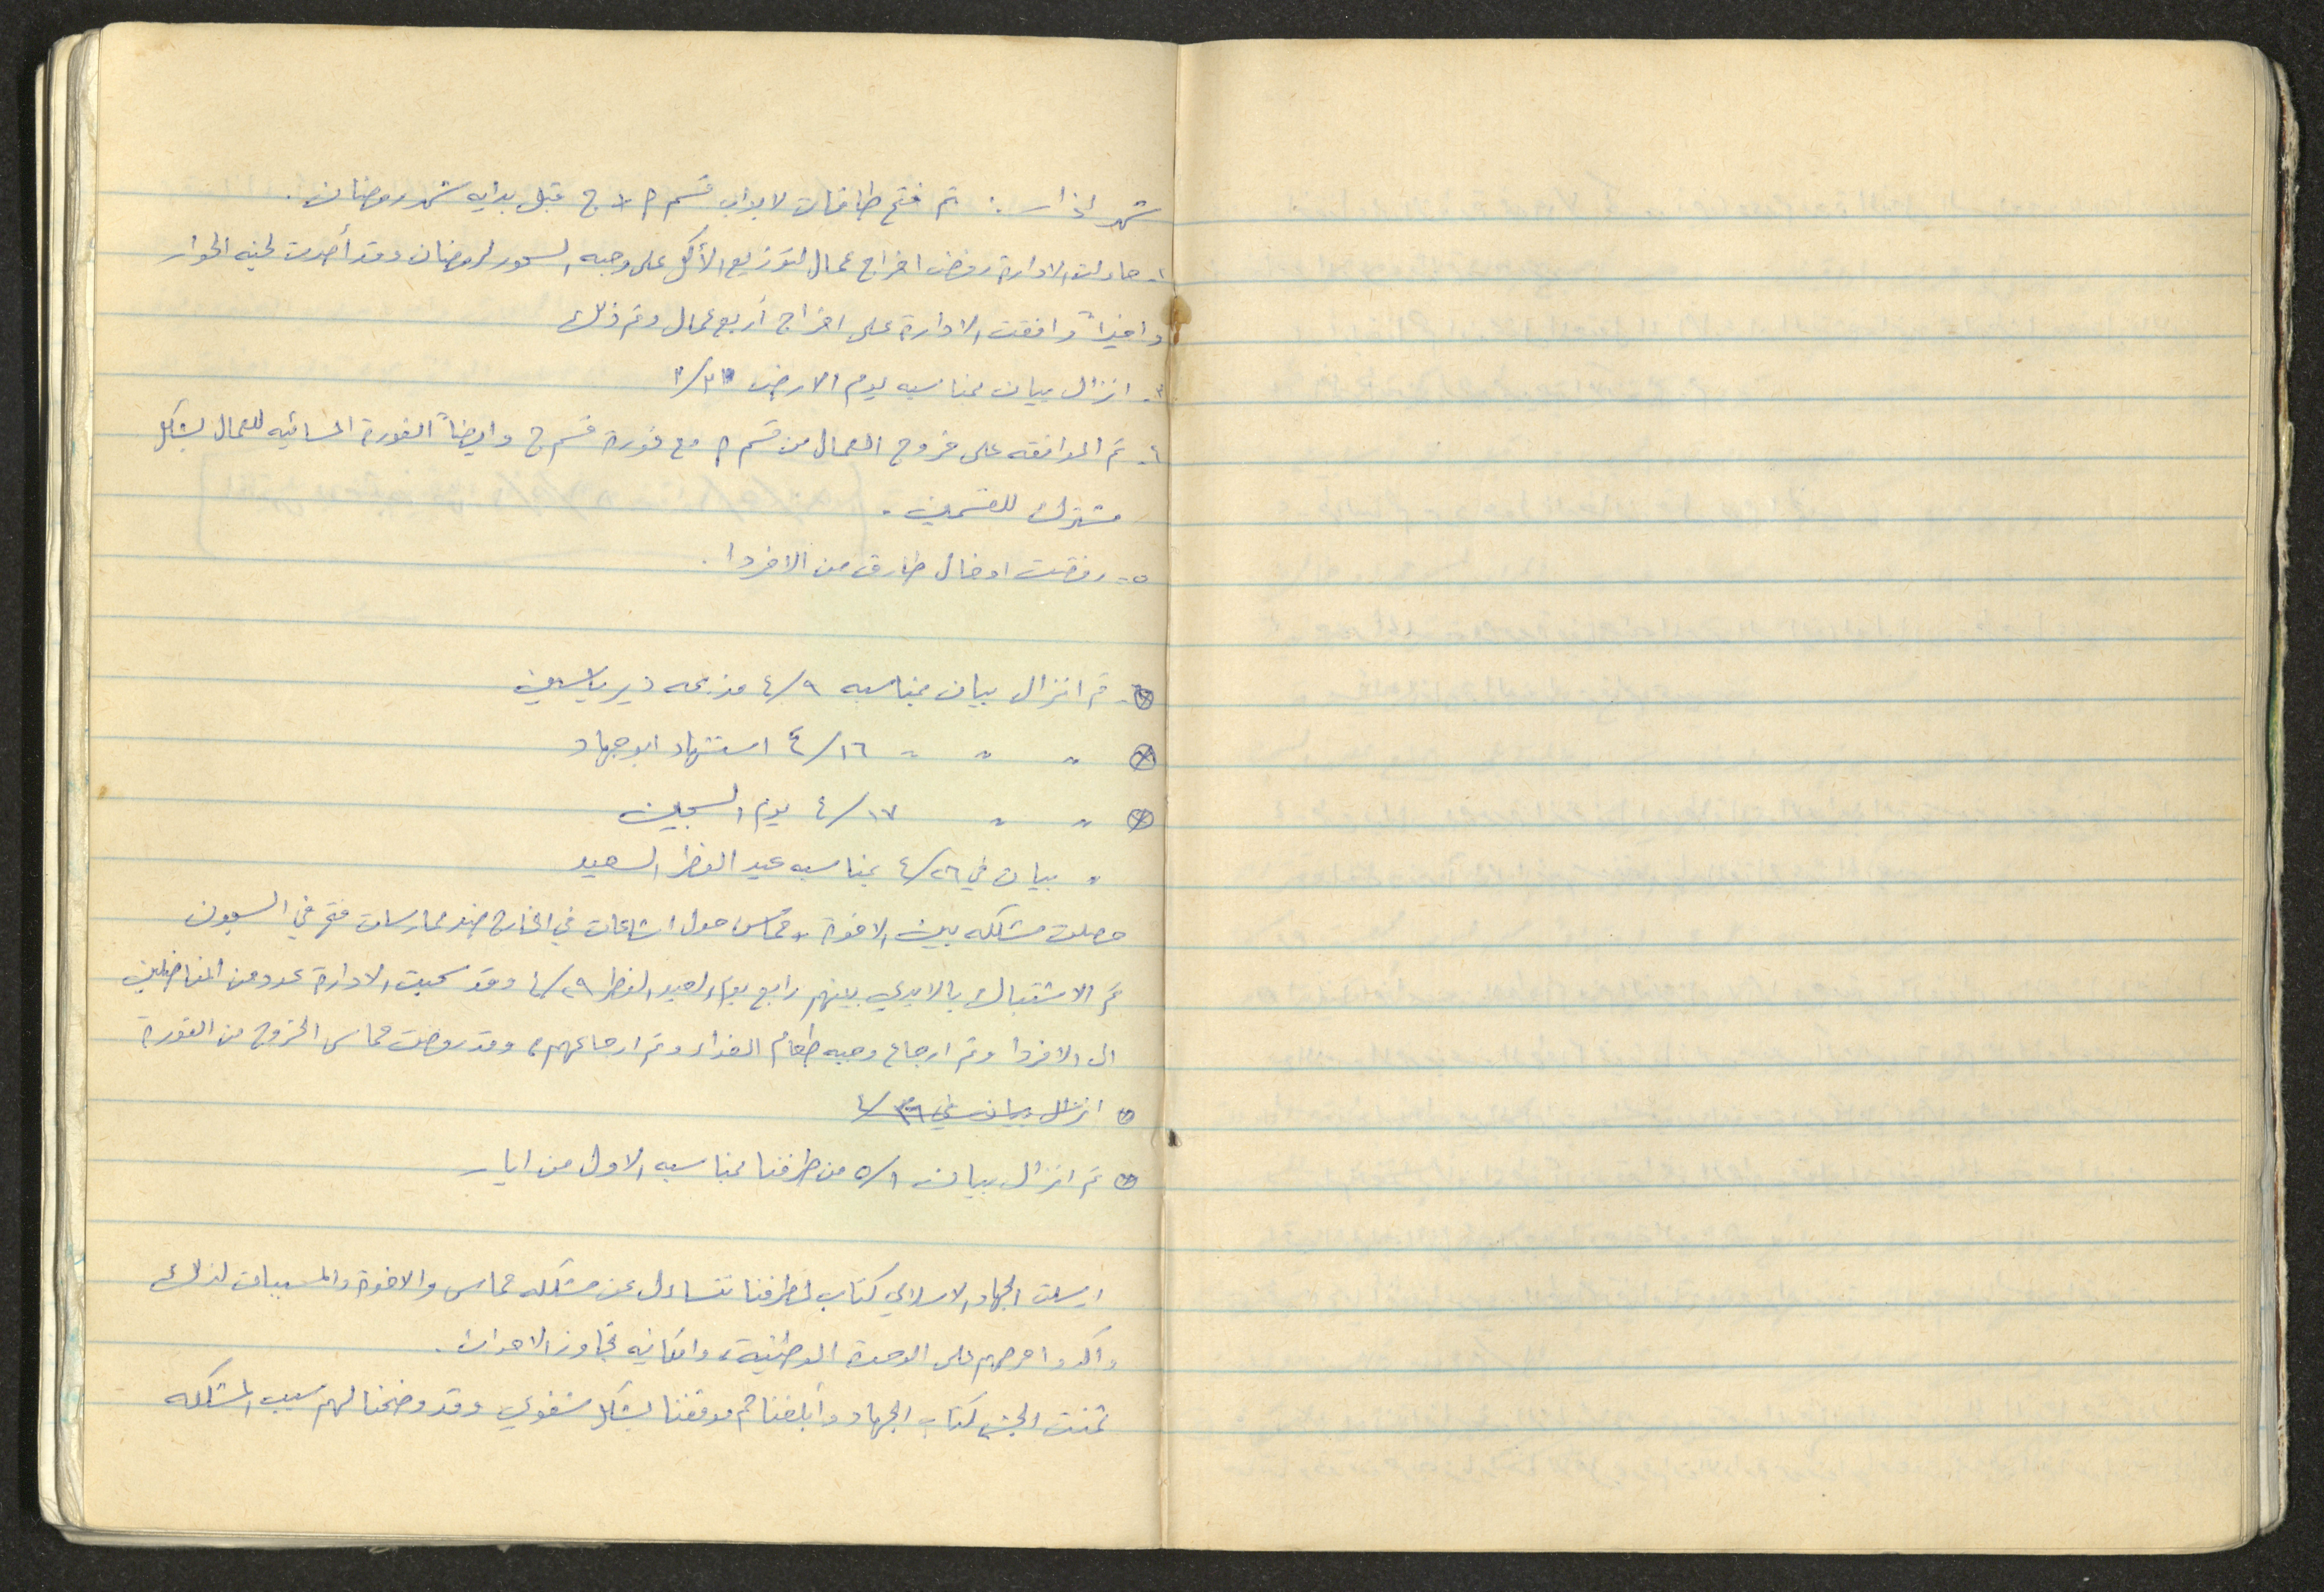 شهر اذار : تم فتح طاقات لابواب قسم م + ج قبل بدايه شهر رمضان .
١- حاولت الادارة رفض اخراج عمال لتوزيع الأكل على وجبه السحور لرمضان وقد أصرت لجنه الحوار
واخيراً وافقت الادارة على اخراج أربع عمال وتم ذلك
٣- انزال بيان بمناسبه يوم الارض ٣/٣٠
٤- تم الموافقه على خروج العمال من قسم م مع فورة قسم ج وايضاً الفورة المسائيه للعمال بشكل
مشترك للقسمين .
٥- رفضت ادخال طارق من الافردا .
- تم انزال بيان بمناسبه ٤/٩ مذبحه دير ياسين
" " " ٤/١٦ استشهاد ابو جهاد
" " ٤/١٧ يوم السجين
" بيان في ٤/٢٦ بمناسبه عيد الفطر السعيد
حصلت مشكله بين الاخوة وحماس حول اشاعات في الخارج ضد ممارسات فتح في السجون
تم الاشتباك بالايدي بينهم رابع يوم العيد الفطر ٤/٢٩ وقد سحبت الادارة عدد من المناضلين
الى الافردا وتم ارجاع وجبه طعام الغداء وتم ارجاعهم ، وقد رفضت حماس الخروج من الفورة
انزال بيان في ٤/٢٦
تم انزال بيان ٥/١ من طرفنا بمناسبه الاول من ايار
ارسلت الجهاد الاسلامي كتاب لطرفنا تتساءل عن مشكله حماس والاخوة والمسببات لذلك
واكدوا حرصهم على الوحدة الوطنية ، وامكانيه تجاوز الاحداث .
ثمنت كتاب الجهاد وأبلغناهم موقفنا بشكل شفوي وقد وضحنا لهم سبب المشكله